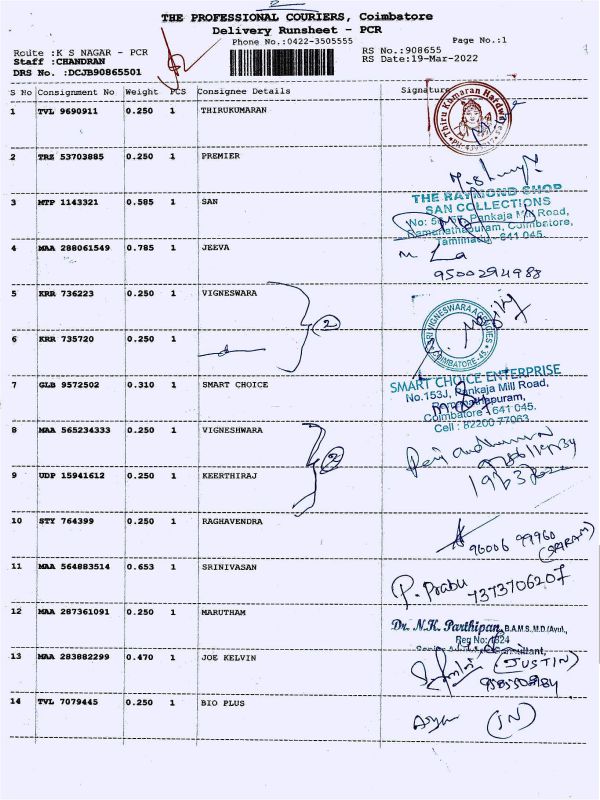 2
THE PROFESSIONAL COURIERS, Coimbatore
Delivery Runsheet - PCR
Phone No.:0422-3505555
Page No.:1
Route :K S NAGAR - PCR
RS No.:908655
Staff :CHANDRAN
RS Date:19-Mar-2022
DRS No. :DCJB90865501
S No Consignment No Weight PCS Consignee Details Signature
1 TVL 9690911 0.250 1 THIRUKUMARAN
Thiru Kumaran Hardwares
2 TRZ 53703885 0.250 1 PREMIER
3 MTP 1143321 0.585 1 SAN
THE RAYMOND SHOP
SAN COLLECTIONS
Pankaja Mill Road,
Ramanathapuram, Coimbatore,
Tamilnadu - 641 045.
4 MAA 288061549 0.785 1 JEEVA
9500294988
5 KRR 736223 0.250 1 VIGNESWARA
2
SRI VIGNESWARA AGENCIES
COIMBATORE-45
6 KRR 735720 0.250 1
7 GLB 9572502 0.310 1 SMART CHOICE
SMART CHOICE ENTERPRISE
No.153J, Pankaja Mill Road,
Ramanathapuram,
Coimbatore 641 045.
Cell : 82200 77063
8 MAA 565234333 0.250 1 VIGNESHWARA
2
9 UDP 15941612 0.250 1 KEERTHIRAJ
10 STY 764399 0.250 1 RAGHAVENDRA
96006 99960
(SRIRAM)
11 MAA 564883514 0.653 1 SRINIVASAN
P. Prabu
7373706207
12 MAA 287361091 0.250 1 MARUTHAM
Dr. N.K. Parthipan, B.A.M.S., M.D.(Ayu).,
Reg No: 1824
Consultant,
13 MAA 283882299 0.470 1 JOE KELVIN
(JUSTIN)
14 TVL 7079445 0.250 1 BIO PLUS
(JN)